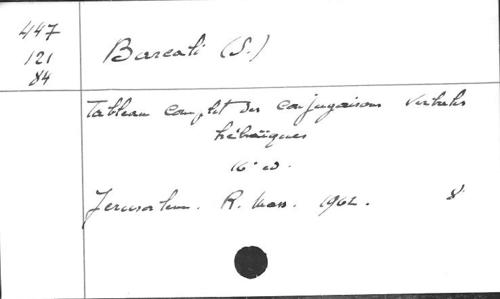 447
121
84
Barcali (S.)
Tableau complet des conjugaisons verbales
hébraïques
16° éd.
Jerusalem. R. Mass. 1962. 8°